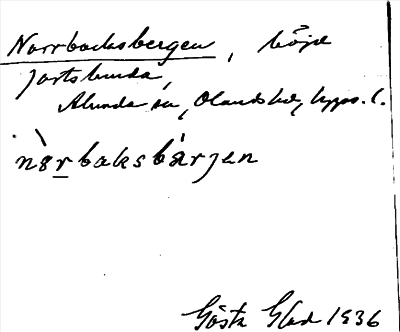 Norrbacksbergen, höjd
Jortsbunda,
Alunda sn, Olands hd, Upps. l.
nòrbaksbàrjen
Gösta Glad 1936